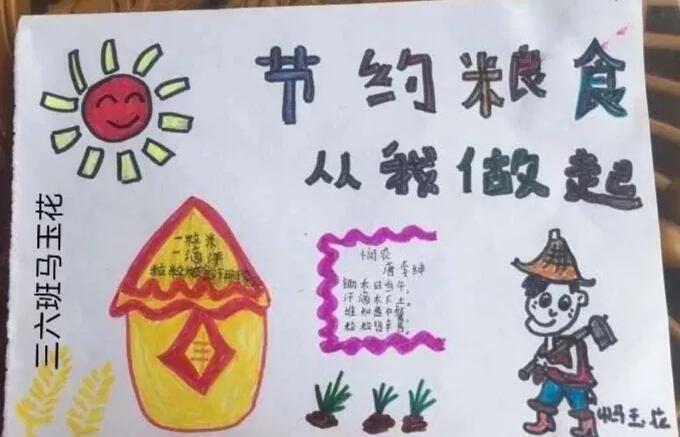 节约粮食
从我做起
三六班马玉花
一粒米
一滴汗
粒粒粮食汗珠换
悯农
唐 李绅
锄禾日当午,
汗滴禾下土。
谁知盘中餐,
粒粒皆辛苦。
三
马玉花